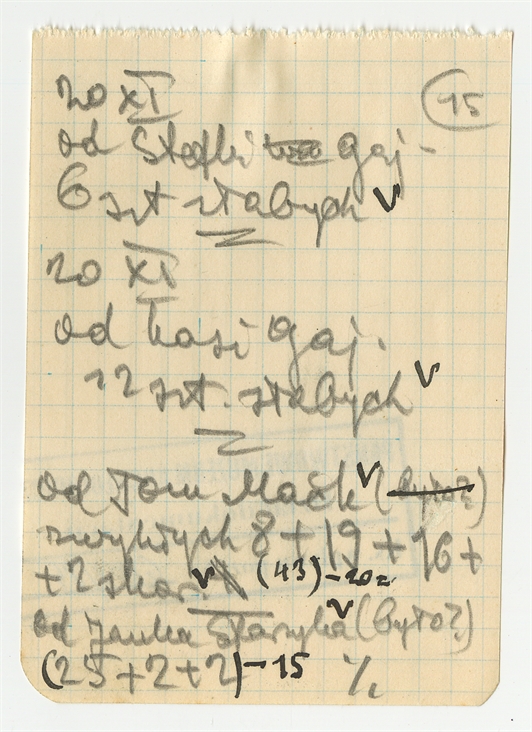 15
20 XI
od Stefki gaj.
6 szt słabych V
20 XI
od Kasi gaj.
12 szt. słabych V
od Tom Maćk V (było?)
zwykłych 8+19+16+
+2 skar. V (43)-20=
od Janka Staszyka V (było?)
(25+2+2)-15 ./.